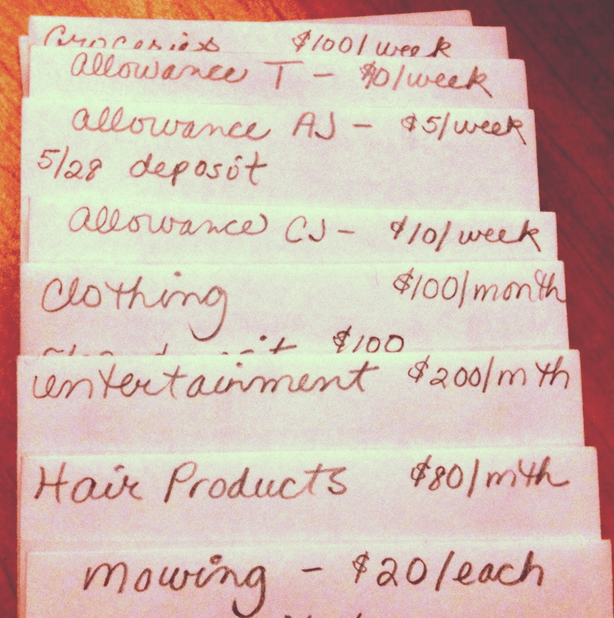 Groceries $100/week
allowance T - $10/week
allowance AJ - $5/week
5/28 deposit
allowance CJ - $10/week
Clothing $100/month
deposit $100
entertainment $200/mth
Hair Products $80/mth
Mowing - $20/each